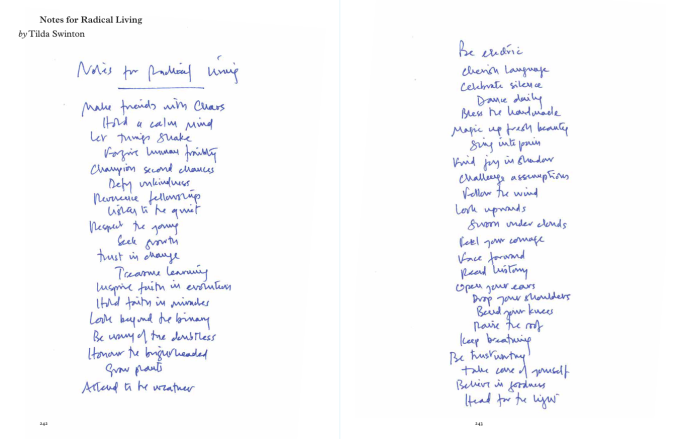 Notes for Radical Living
by Tilda Swinton
Notes for Radical Living
Make friends with Chaos
Hold a calm mind
Let things shake
Forgive human frailty
Champion second chances
Defy unkindness
Reverence fellowship
Listen to the quiet
Respect the young
Seek growth
Trust in change
Treasure learning
Inspire faith in evolution
Hold faith in miracles
Look beyond the binary
Be wary of the doubtless
Honour the
Grow plants
Attend to the weather
242
Be
Cherish language
Celebrate silence
Dance daily
Bless the handmade
Magic up fresh beauty
Sing into pain
Find joy in shadow
Challenge assumptions
Follow the wind
Look upwards
Swoon under clouds
Feel your courage
Face forward
Read history
Open your ears
Drop your shoulders
Bend your knees
Raise the roof
Keep breathing
Be trustworthy
Take care of yourself
Believe in goodness
Head for the light
243